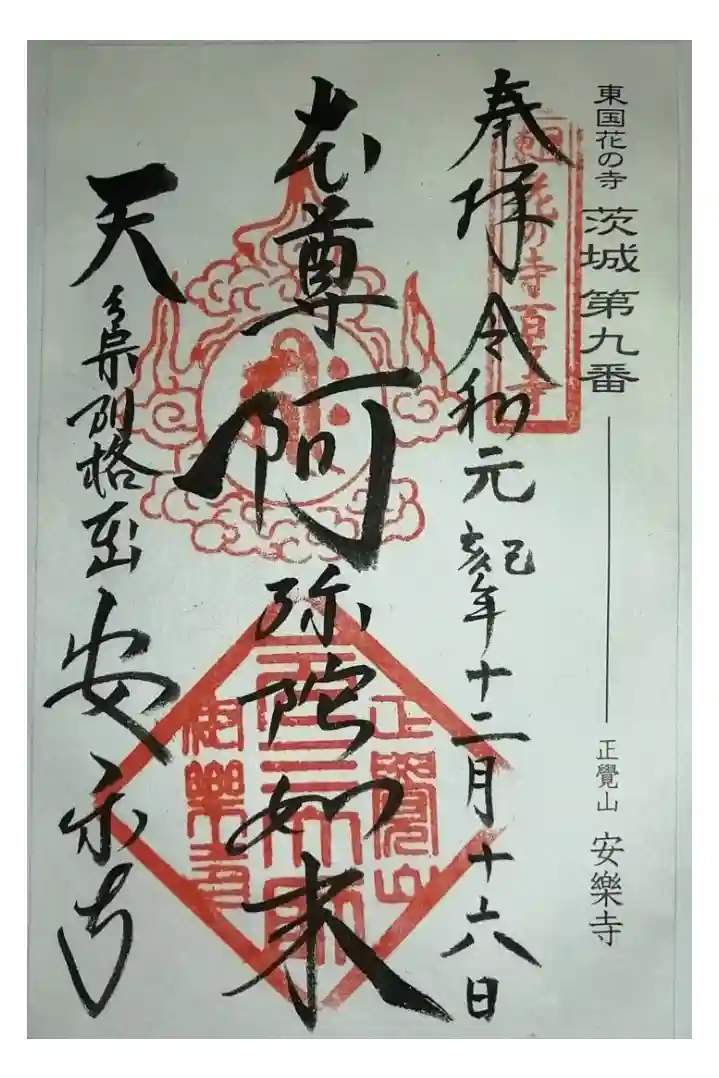 東国花の寺 茨城 第九番 正覺山 安樂寺
奉拝 令和元己亥年十二月十六日
本尊 阿弥陀如来
天台宗別格本山 安楽寺
花の寺百ヶ寺
正覺山
安樂寺